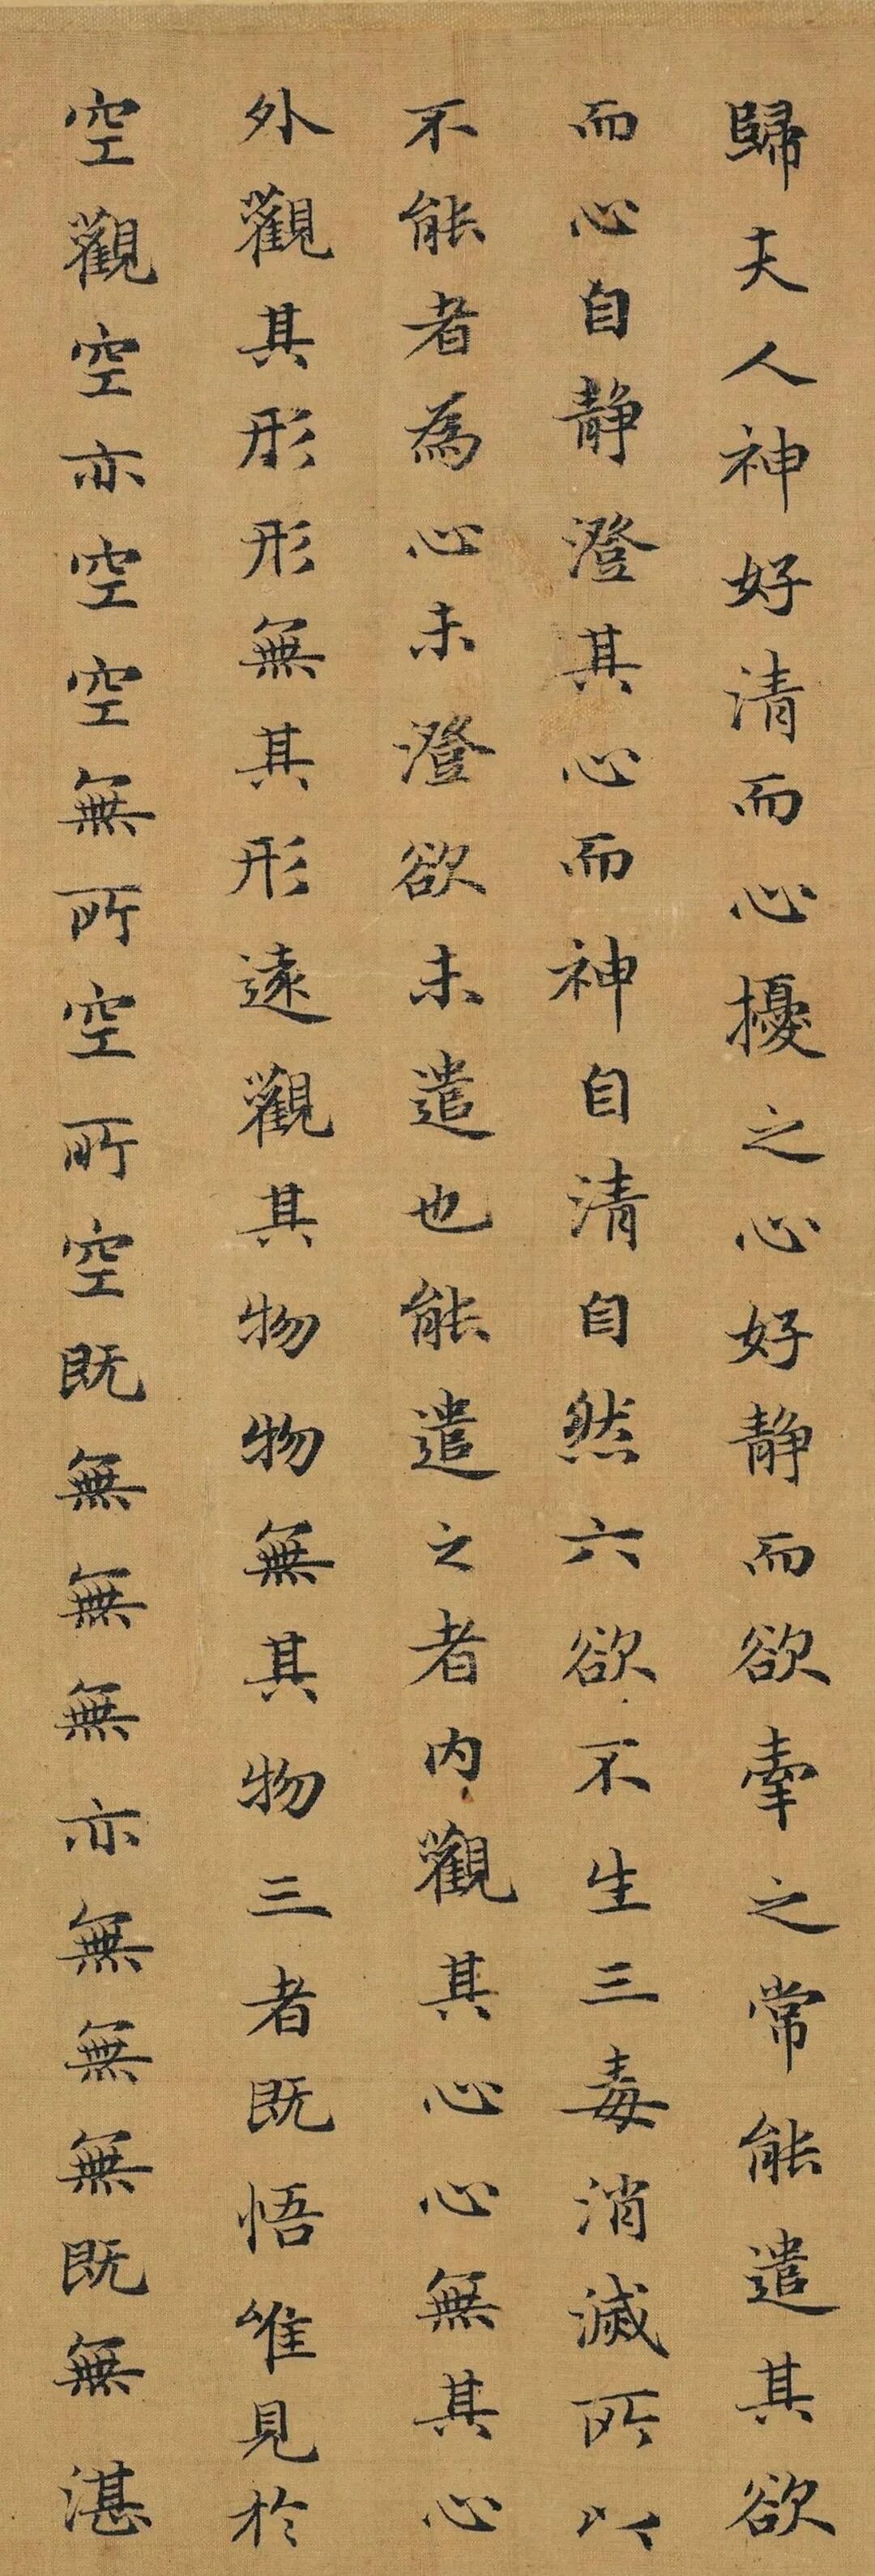 歸夫人神好清而心擾之心好静而欲牽之常能遣其欲
而心自静澄其心而神自清自然六欲不生三毒消滅所以
不能者為心未澄欲未遣也能遣之者内觀其心心無其心
外觀其形形無其形遠觀其物物無其物三者既悟唯見於
空觀空亦空空無所空所空既無無無亦無無無既無湛